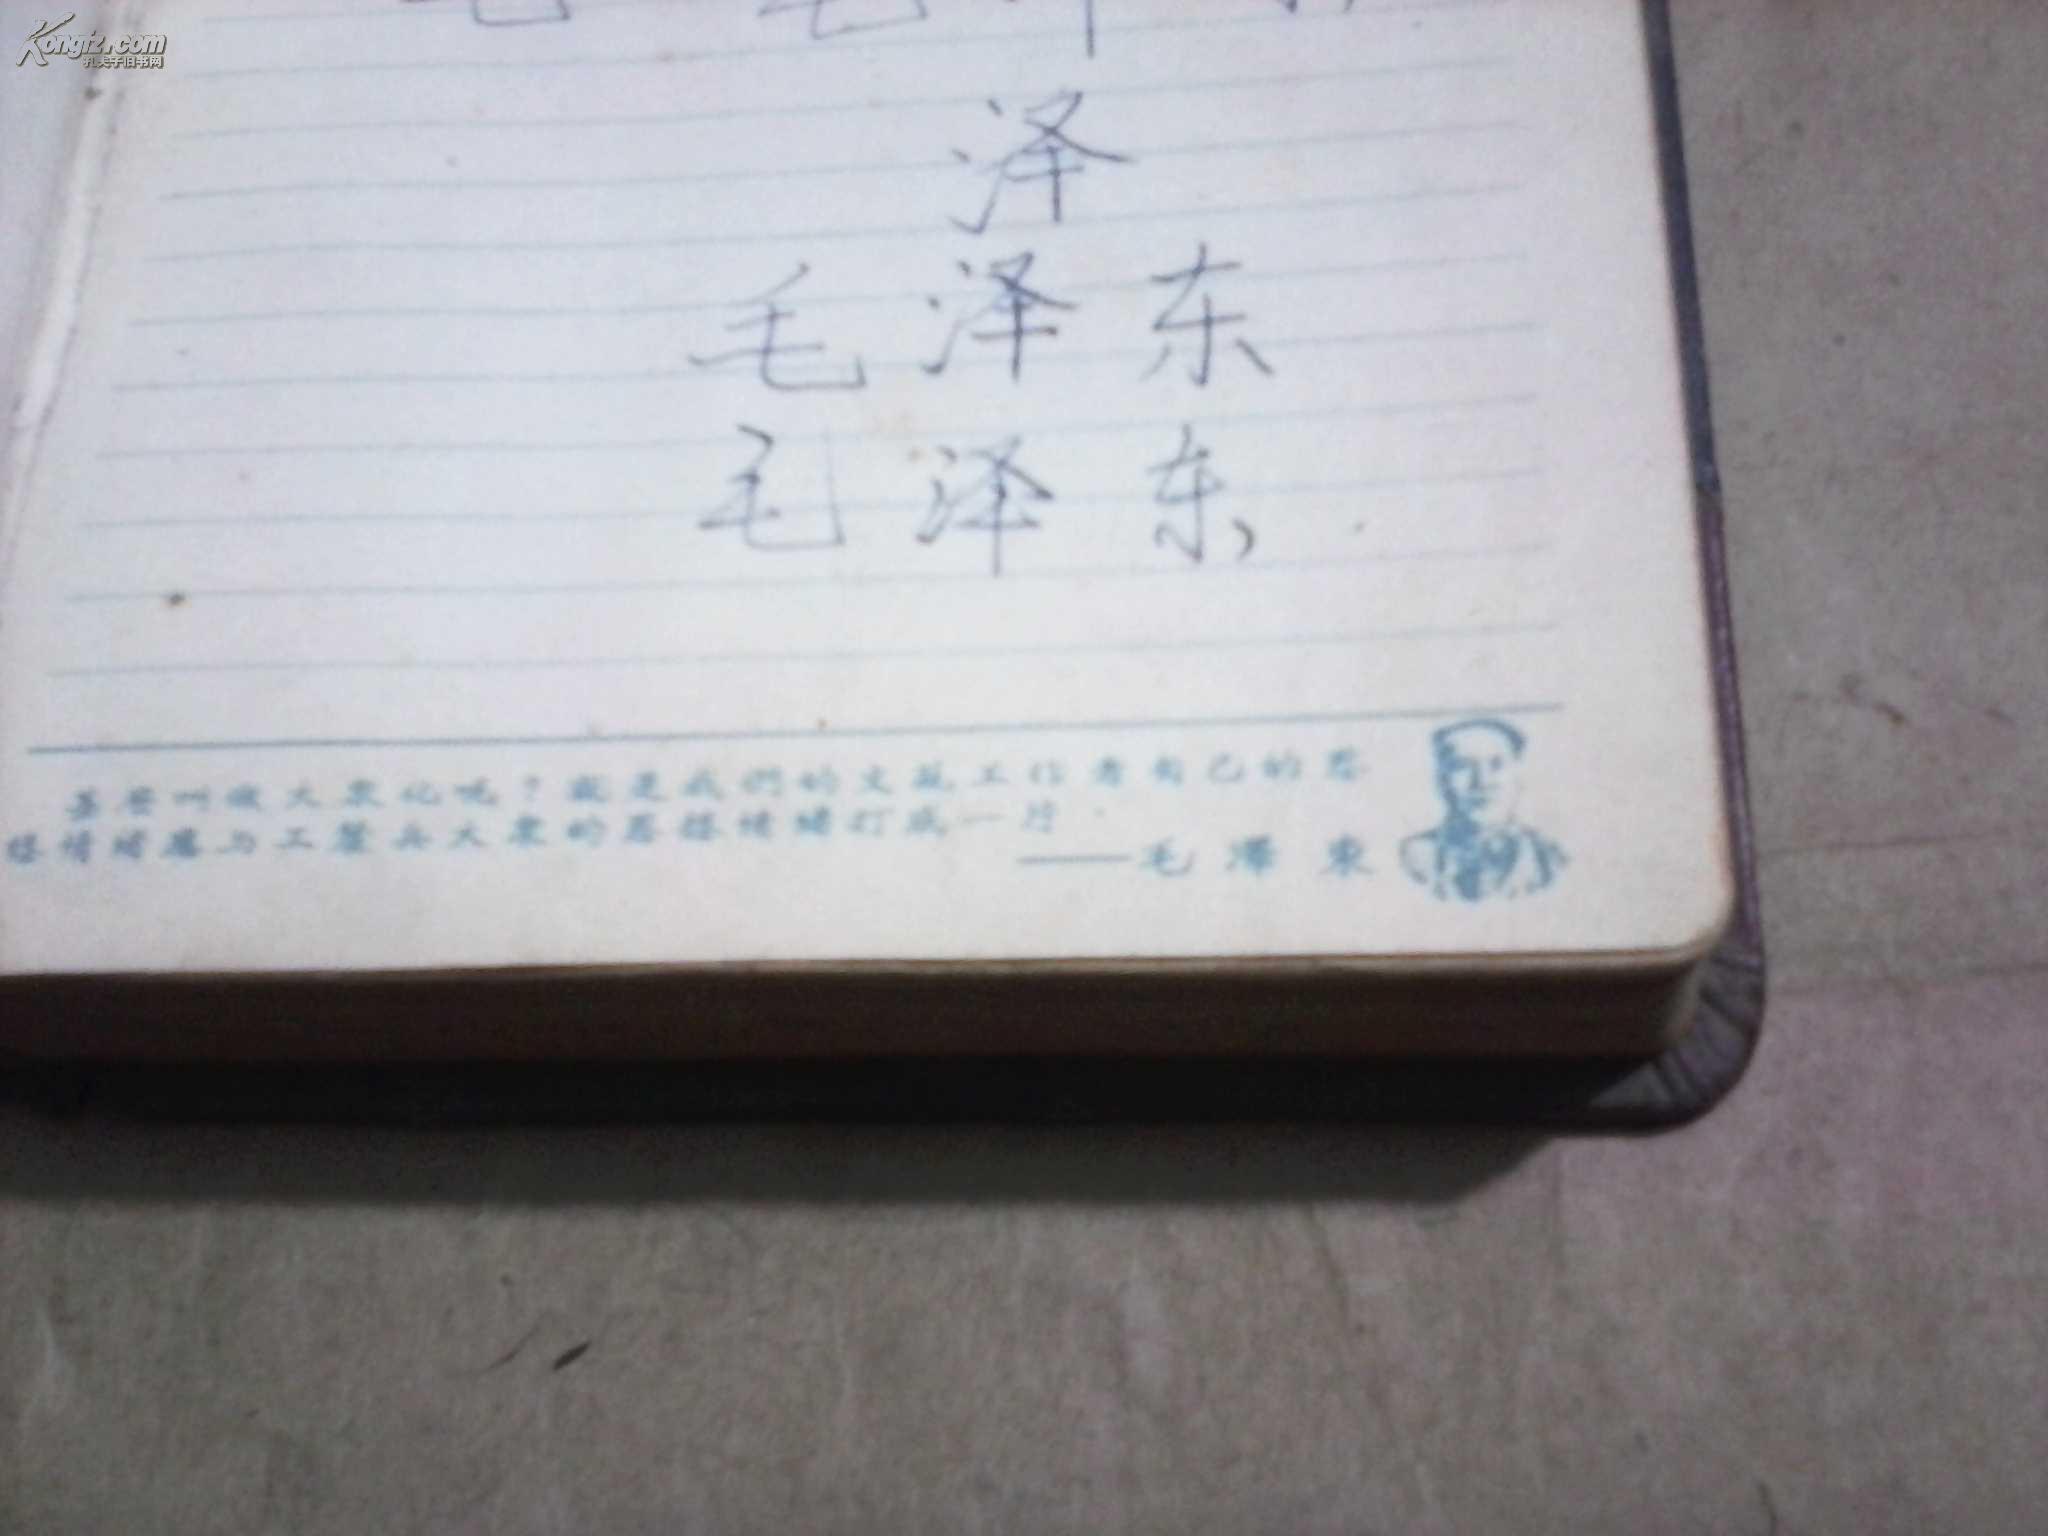 Kongfz.com
孔夫子旧书网
毛 毛泽
泽
毛泽东
毛泽东
甚麽叫做大衆化呢?就是我們的文藝工作者自己的思
想情緒應與工農兵大衆的思想情緒打成一片.
——毛澤東